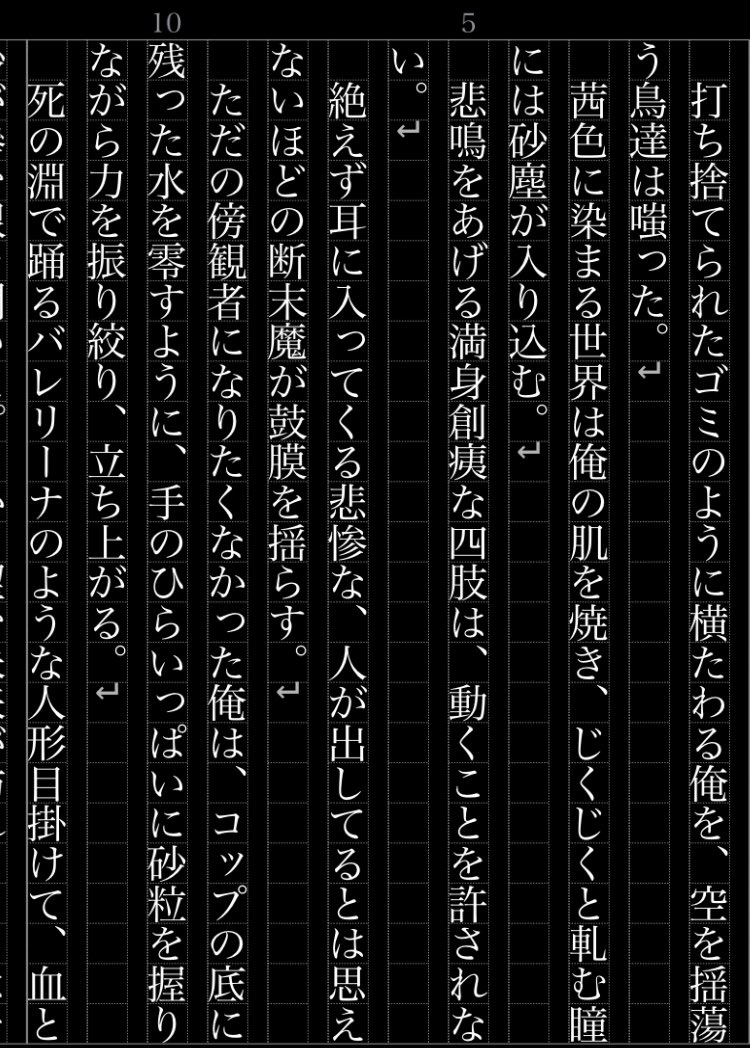 10
5
打ち捨てられたゴミのように横たわる俺を、空を揺蕩
う鳥達は嗤った。↵
茜色に染まる世界は俺の肌を焼き、じくじくと軋む瞳
には砂塵が入り込む。↵
悲鳴をあげる満身創痍な四肢は、動くことを許されな
い。↵
絶えず耳に入ってくる悲惨な、人が出してるとは思え
ないほどの断末魔が鼓膜を揺らす。↵
ただの傍観者になりたくなかった俺は、コップの底に
残った水を零すように、手のひらいっぱいに砂粒を握り
ながら力を振り絞り、立ち上がる。↵
死の淵で踊るバレリーナのような人形目掛けて、血と